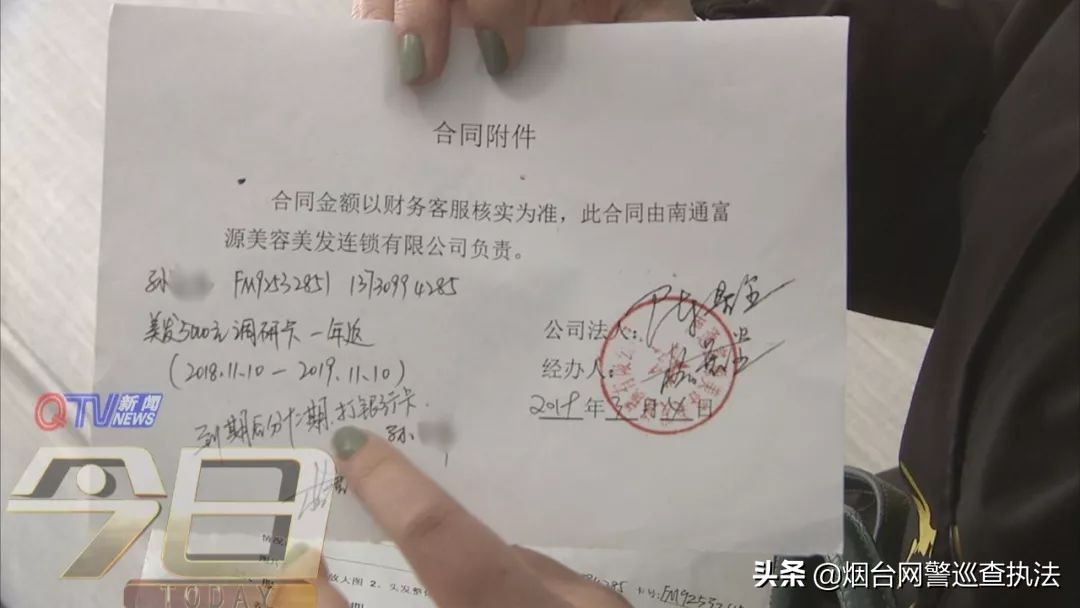 合同附件
合同金额以财务客服核实为准，此合同由南通富
源美容美发连锁有限公司负责。
孙 FM92532851 13730994285
美发5000元调研卡 一年返
(2018.11.10—2019.11.10)
到期后分十二期.打银行卡.
孙
公司法人:
经办人:
2019年3月 日
QTV新闻
NEWS
今日
TODAY
放大图 2、头发整体
头条 @烟台网警巡查执法